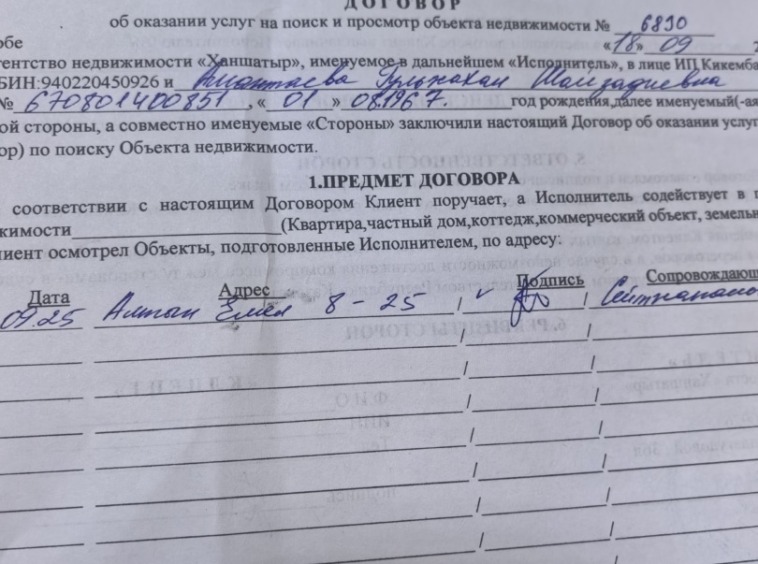 ДОГОВОР
об оказании услуг на поиск и просмотр объекта недвижимости № 6890
обе «18» 09
гентство недвижимости «Ханшатыр», именуемое в дальнейшем «Исполнитель», в лице ИП Кикемба
БИН:940220450926 и
№ 670801400851, « 01 » 08.1967. год рождения,далее именуемый(-ая
ой стороны, а совместно именуемые «Стороны» заключили настоящий Договор об оказании услуг
ор) по поиску Объекта недвижимости.
1.ПРЕДМЕТ ДОГОВОРА
соответствии с настоящим Договором Клиент поручает, а Исполнитель содействует в п
жимости (Квартира,частный дом,коттедж,коммерческий объект, земельн
лиент осмотрел Объекты, подготовленные Исполнителем, по адресу:
Дата Адрес Подпись Сопровождающ
09.25 Алтын Емел 8-25 / /